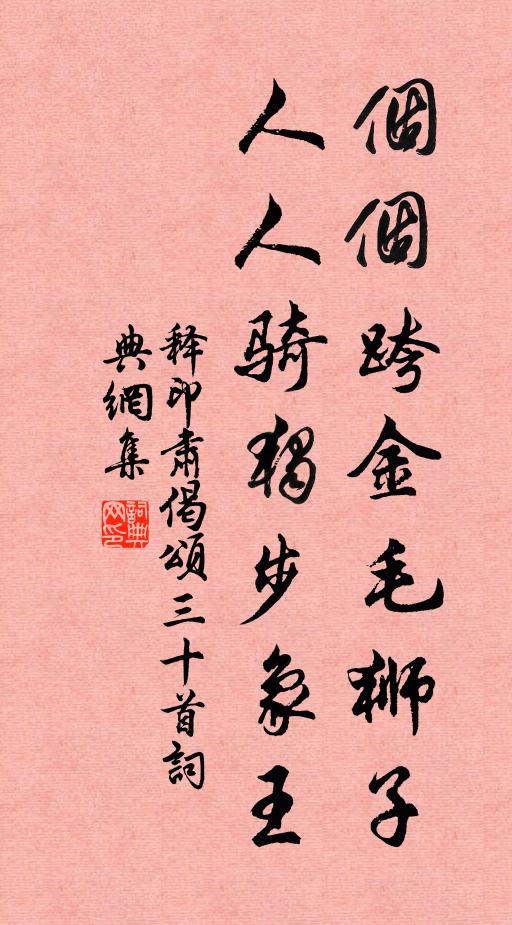 個個跨金毛獅子
人人騎獨步象王
释印肅偈頌三十首詞
典網集
詞典
网印